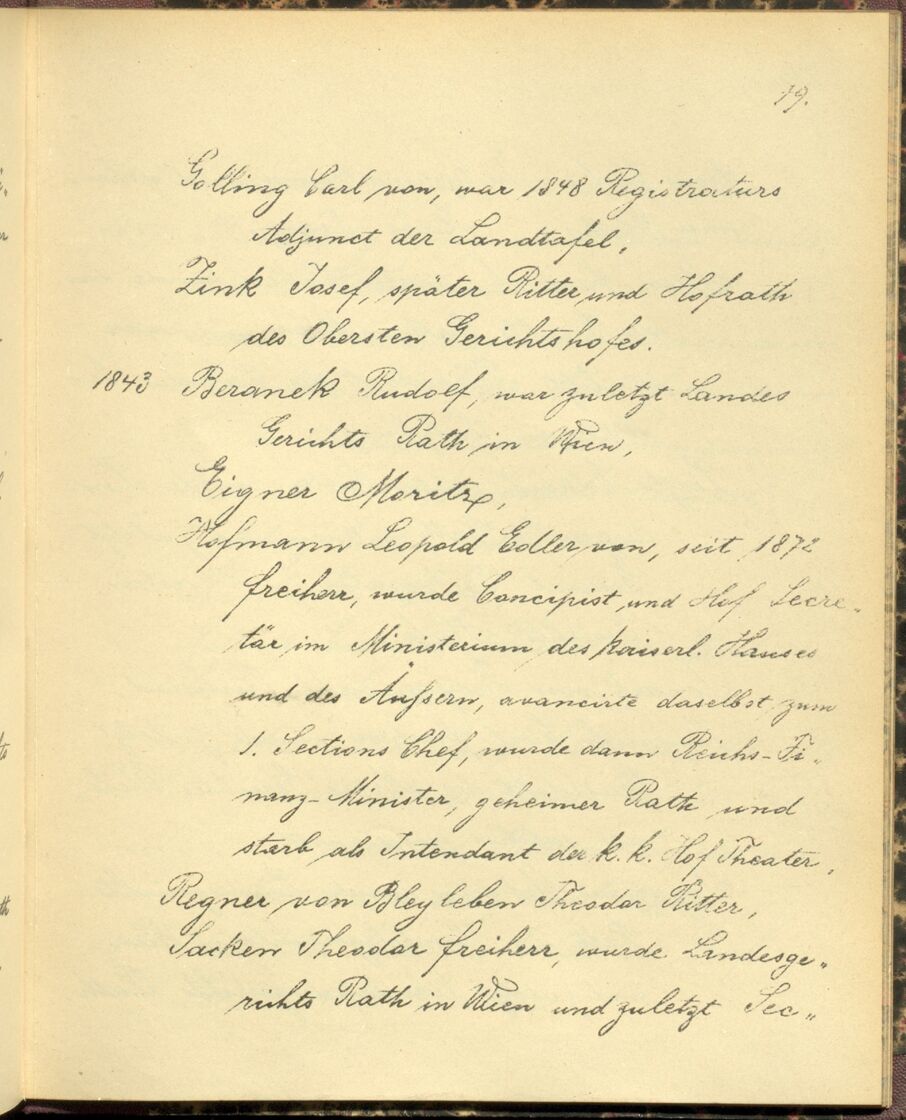 19.
Golling Carl von, war 1848 Registraturs
Adjunct der Landtafel,
Zink Josef, später Ritter und Hofrath
des Obersten Gerichtshofes.
1843 Beranek Rudolf, war zuletzt Landes
Gerichts Rath in Wien,
Eigner Moritz,
Hofmann Leopold Edler von, seit 1872
Freiherr, wurde Concipist und Hof Secre„
tär im Ministerium des kaiserl. Hauses
und des Äußern, avancirte daselbst zum
1. Sections Chef, wurde dann Reichs-Fi„
nanz-Minister, geheimer Rath und
starb als Intendant der k. k. Hof Theater,
Regner von Bleyleben Theodor Ritter,
Sacken Theodor Freiherr, wurde Landesge„
richts Rath in Wien und zuletzt Sec„